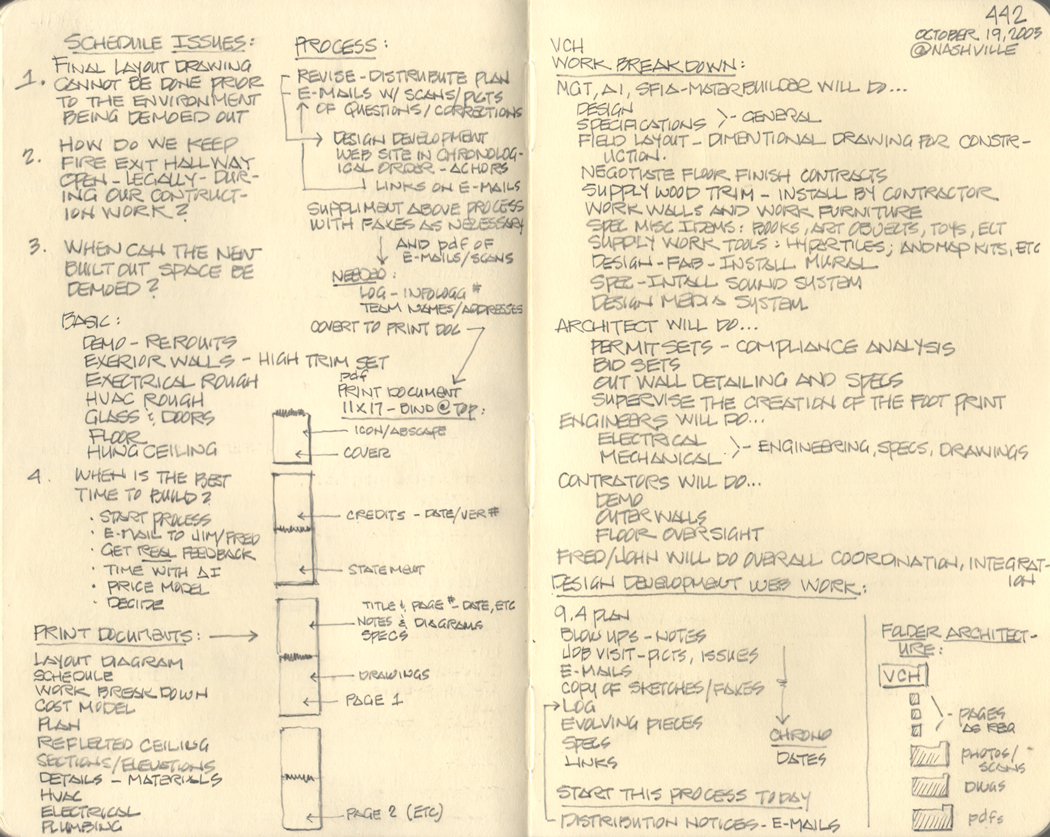 SCHEDULE ISSUES:
1. FINAL LAYOUT DRAWING
CANNOT BE DONE PRIOR
TO THE ENVIRONMENT
BEING DEMOED OUT
2. HOW DO WE KEEP
FIRE EXIT HALLWAY
OPEN - LEGALLY - DUR-
ING OUR CONTRUCT-
ION WORK?
3. WHEN CAN THE NEW
BUILT OUT SPACE BE
DEMOED?
BASIC:
DEMO - REROUTS
EXERIOR WALLS - HIGH TRIM SET
EXECTRICAL ROUGH
HVAC ROUGH
GLASS & DOORS
FLOOR
HUNG CEILING
4. WHEN IS THE BEST
TIME TO BUILD?
· START PROCESS
· E-MAIL TO JIM/FRED
· GET REAL FEEDBACK
· TIME WITH AI
· PRICE MODEL
· DECIDE
PRINT DOCUMENTS:
LAYOUT DIAGRAM
SCHEDULE
WORK BREAK DOWN
COST MODEL
PLAN
REFLECTED CEILING
SECTIONS/ELEVATIONS
DETAILS - MATERIALS
HVAC
ELECTRICAL
PLUMBING
PROCESS:
REVISE - DISTRUBUTE PLAN
E-MAILS W/ SCANS/PICTS
OF QUESTIONS/CORRECTIONS
DESIGN DEVELOPMENT
WEB SITE IN CHRONOLOG-
ICAL ORDER - ACHORS
LINKS ON E-MAILS
SUPPLIMENT ABOVE PROCESS
WITH FAXES AS NECESSARY
AND pdf OF
E-MAILS/SCANS
NEEDED:
LOG - INFOLOGG #
TEAM NAMES/ADDRESSES
COVERT TO PRINT DOC
pdf
PRINT DOCUMENT
11x17 - BIND @ TOP:
ICON/ABSCAPE
COVER
CREDITS - DATE/VER #
STATEMENT
TITLE & PAGE # - DATE, ETC
NOTES & DIAGRAMS
SPECS
DRAWINGS
PAGE 1
PAGE 2 (ETC)
442
OCTOBER 19, 2003
@NASHVILLE
VCH
WORK BREAKDOWN:
MGT, AI, SFIA-MATERBUILDER WILL DO...
DESIGN
SPECIFICATIONS >- GENERAL
FIELD LAYOUT - DIMENTIONAL DRAWING FOR CONSTR-
UCTION.
NEGOTIATE FLOOR FINISH CONTRACTS
SUPPLY WOOD TRIM - INSTALL BY CONTRACTOR
WORK WALLS AND WORK FURNITURE
SPEC MISC ITEMS: BOOKS, ART OBJECTS, TOYS, ECT
SUPPLY WORK TOOLS: HYPERTILES; ANDMAP KITS, ETC
DESIGN - FAB - INSTALL MURAL
SPEC - INTALL SOUND SYSTEM
DESIGN MEDIA SYSTEM
ARCHITECT WILL DO...
PERMIT SETS - COMPLIANCE ANALYSIS
BID SETS
OUT WALL DETAILING AND SPECS
SUPERVISE THE CREATION OF THE FOOT PRINT
ENGINEERS WILL DO...
ELECTRICAL
MECHANICAL >- ENGINEERING, SPECS, DRAWINGS
CONTRATORS WILL DO...
DEMO
OUTER WALLS
FLOOR OVERSIGHT
FRED/JOHN WILL DO OVERALL COORDINATION, INTEGRAT-
ION
DESIGN DEVELOPMENT WEB WORK:
9.4 PLAN
BLOW UPS - NOTES
JOB VISIT - PICTS, ISSUES
E-MAILS
COPY OF SKETCHES/FAXES
LOG
EVOLVING PIECES
SPECS
LINKS
CHRONO
DATES
START THIS PROCESS TODAY
DISTRIBUTION NOTICES - E-MAILS
FOLDER ARCHITECT-
URE:
VCH
PAGES
AS REQ
PHOTOS/
SCANS
DWGS
pdfs